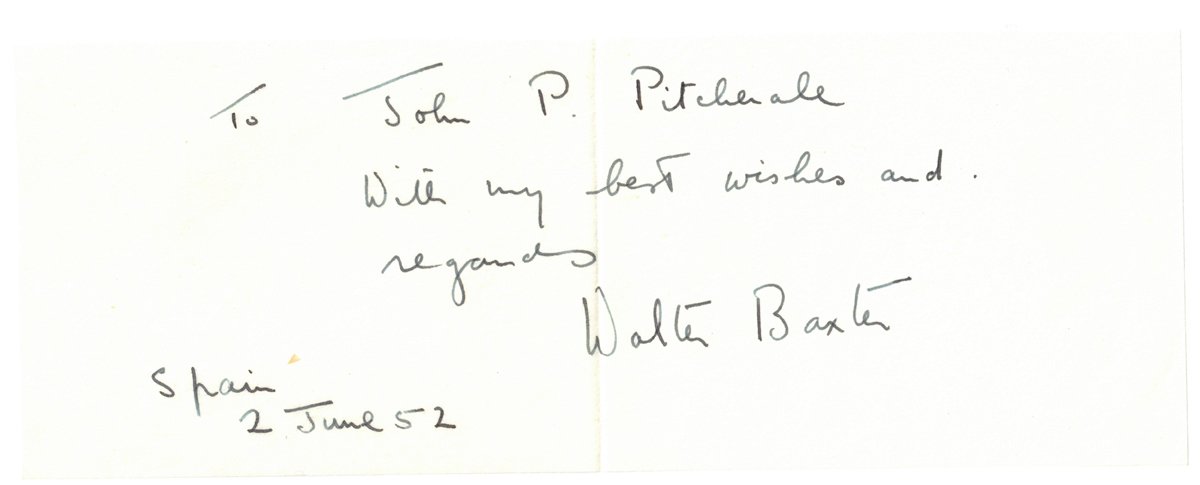 To John P. Pitcherale
With my best wishes and.
regards
Walter Baxter
Spain
2 June 52